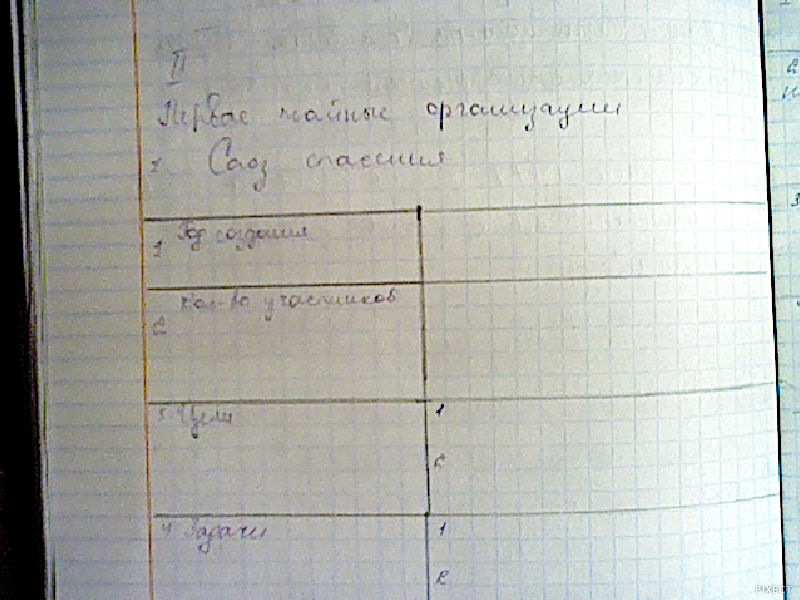 II
Первые тайные организации
1. Союз спасения
1 Год создания
2 Кол-во участников
3. Цели
1
2
4 Задачи
1
2